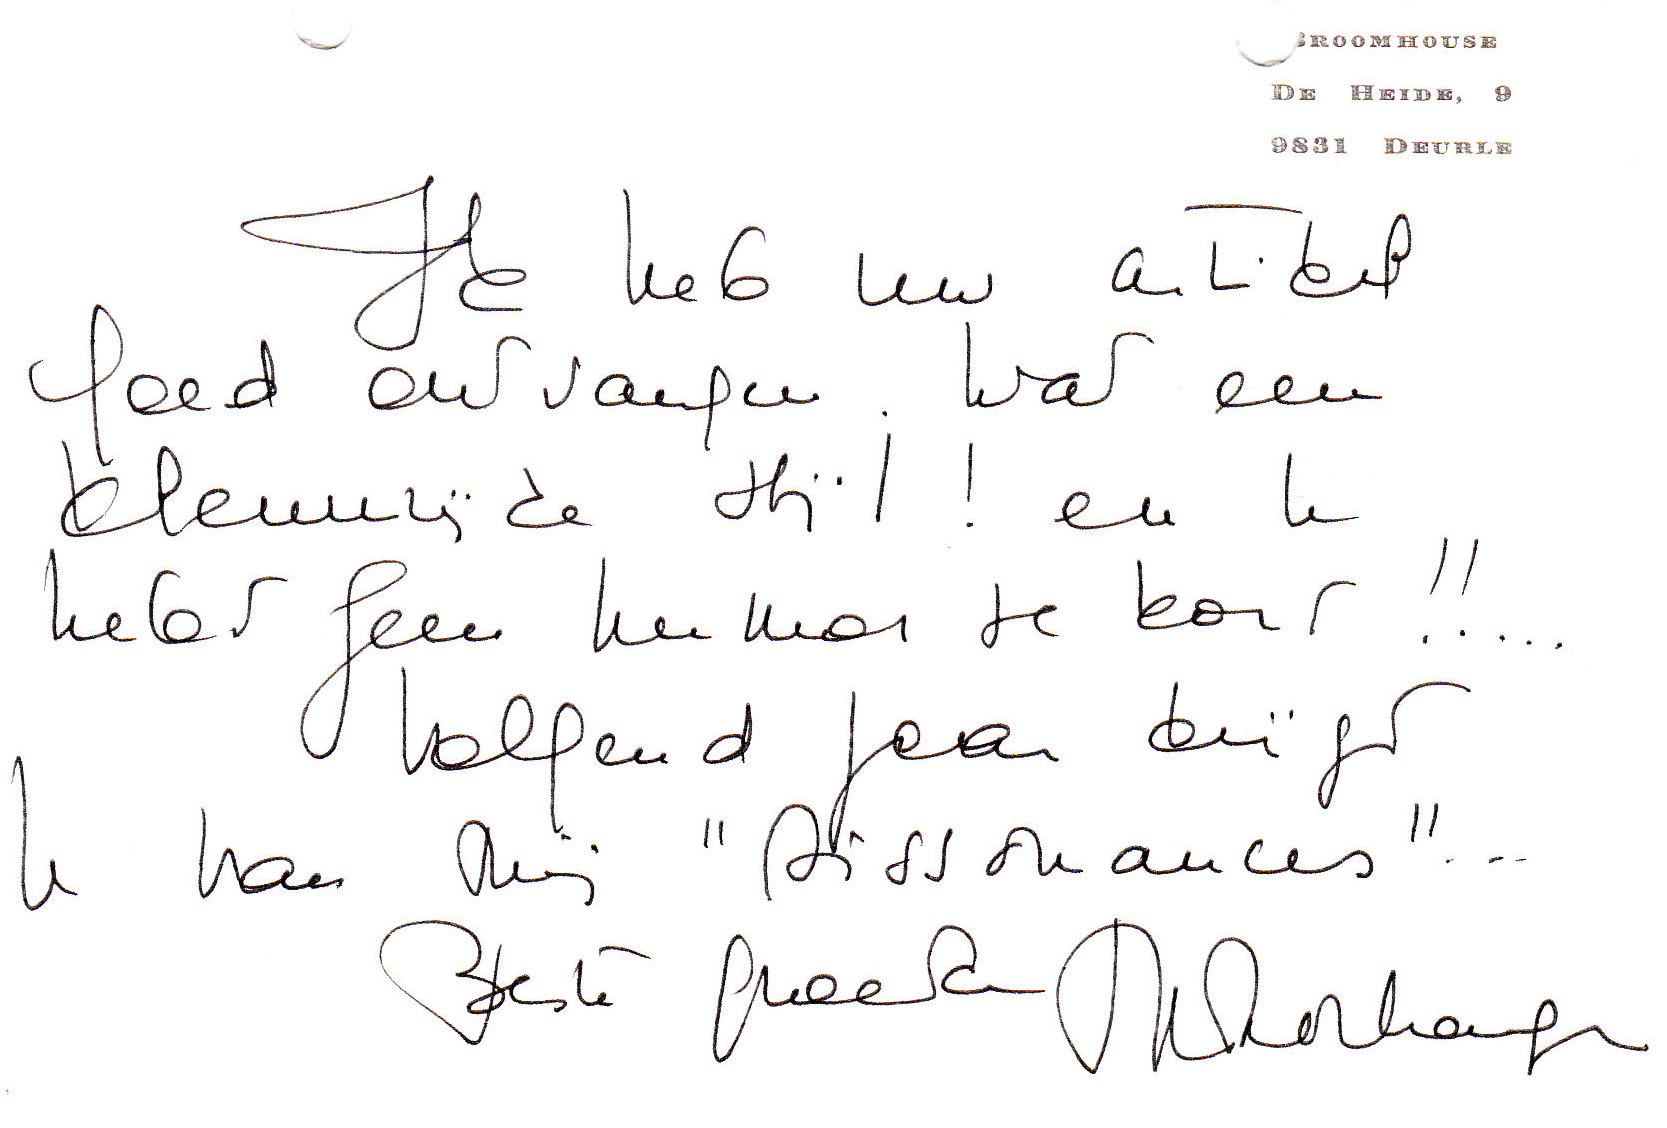 BROOMHOUSE
DE HEIDE, 9
9831 DEURLE
Ik heb uw artikel
goed ontvangen. Wat een
kleurrijke stijl! en u
hebt geen humor te kort !!.....
Volgend jaar krijgt
u van mij "Dissonances"...
Beste groeten